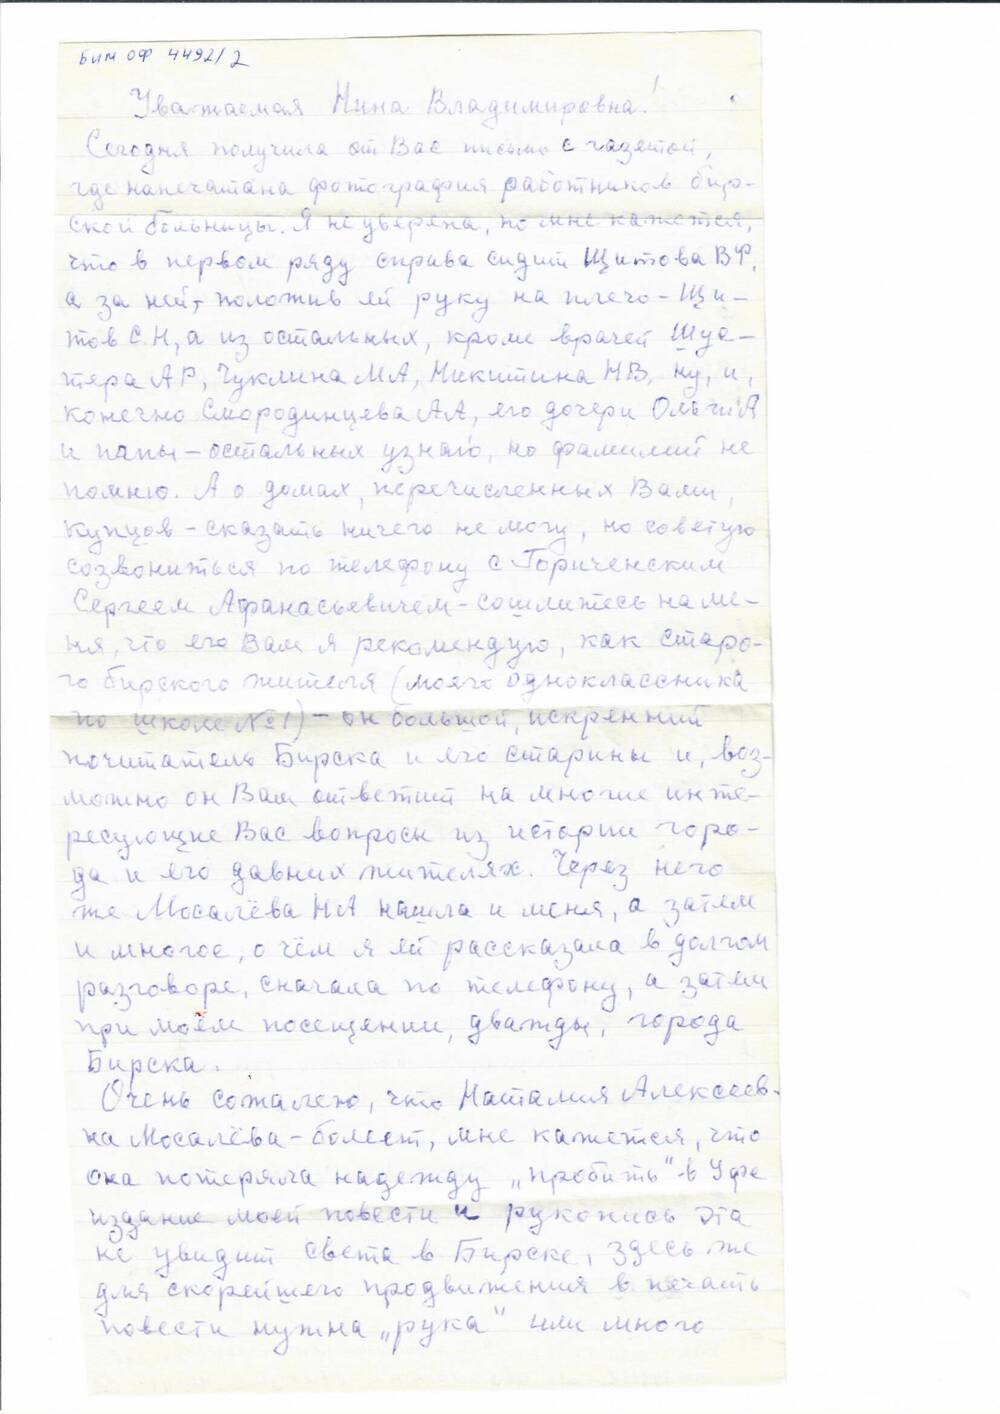 БИМ ОФ 4492/2
Уважаемая Нина Владимировна!
Сегодня получила от Вас письмо с газетой,
где напечатана фотография работников бир-
ской больницы. Я не уверена, но мне кажется,
что в первом ряду справа сидит Щитова ВФ,
а за ней, положив ей руку на плечо – Щи-
тов С.Н, а из остальных, кроме врачей Шус-
тера АР, Чуклина МА, Никитина НВ, ну, и,
конечно Смородинцева АА, его дочери Ольги А
и папы – остальных узнаю, но фамилий не
помню. А о домах, перечисленных Вами,
купцов – сказать ничего не могу, но советую
созвониться по телефону с Гориченским
Сергеем Афанасьевичем – сошлитесь на ме-
ня, что его Вам я рекомендую, как старо-
го бирского жителя (моего одноклассника
по школе №1) – он большой, искренний
почитатель Бирска и его старины и, воз-
можно он Вам ответит на многие инте-
ресующие Вас вопросы из истории горо-
да и его давних жителях. Через него
же Мосалёва НА нашла и меня, а затем
и многое, о чём я ей рассказала в долгом
разговоре, сначала по телефону, а затем
при моём посещении, дважды, города
Бирска.
Очень сожалею, что Наталия Алексеев-
на Мосалёва – болеет, мне кажется, что
она потеряла надежду „пробить" в Уфе
издание моей повести и рукопись эта
не увидит света в Бирске, здесь же
для скорейшего продвижения в печать
повести нужна „рука" или много